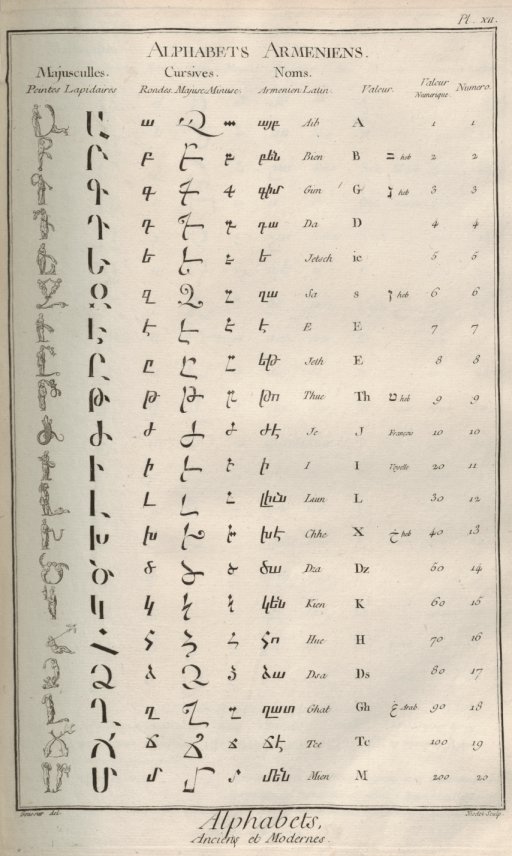 Pl. XII.
ALPHABETS ARMENIENS.
Majusculles. Cursives. Noms.
Peintes Lapidaires Rondes Majusc. Minusc. Armenien Latin. Valeur. Valeur Numerique. Numero.
Ա ա Ա ա այբ Aib A 1 1
Բ բ Բ բ բեն Bien B ב heb 2 2
Գ գ Գ գ գիմ Gim G heb 3 3
Դ դ Դ դ դա Da D 4 4
Ե ե Ե ե ե Jetsch ie 5 5
Զ զ Զ զ զա Sa s ז heb 6 6
Է է Է է է E E 7 7
Ը ը Ը ը եթ Jeth E 8 8
Թ թ Թ թ թո Thue Th ט heb 9 9
Ժ ժ Ժ ժ ժէ Je J François 10 10
Ի ի Ի ի ի I I Voyelle 20 11
Լ լ Լ լ լիւն Liun L 30 12
Խ խ Խ խ խէ Chhe X heb 40 13
Ծ ծ Ծ ծ ծա Dza Dz 50 14
Կ կ Կ կ կեն Kien K 60 15
Հ հ Հ հ հո Hue H 70 16
Ձ ձ Ձ ձ ձա Dsa Ds 80 17
Ղ ղ Ղ ղ ղատ Ghat Gh Arab. 90 18
Ճ ճ Ճ ճ ճէ Tce Tc 100 19
Մ մ Մ մ մեն Mien M 200 20
Goussier del. Niodot Sculp.
Alphabets,
Anciens et Modernes.